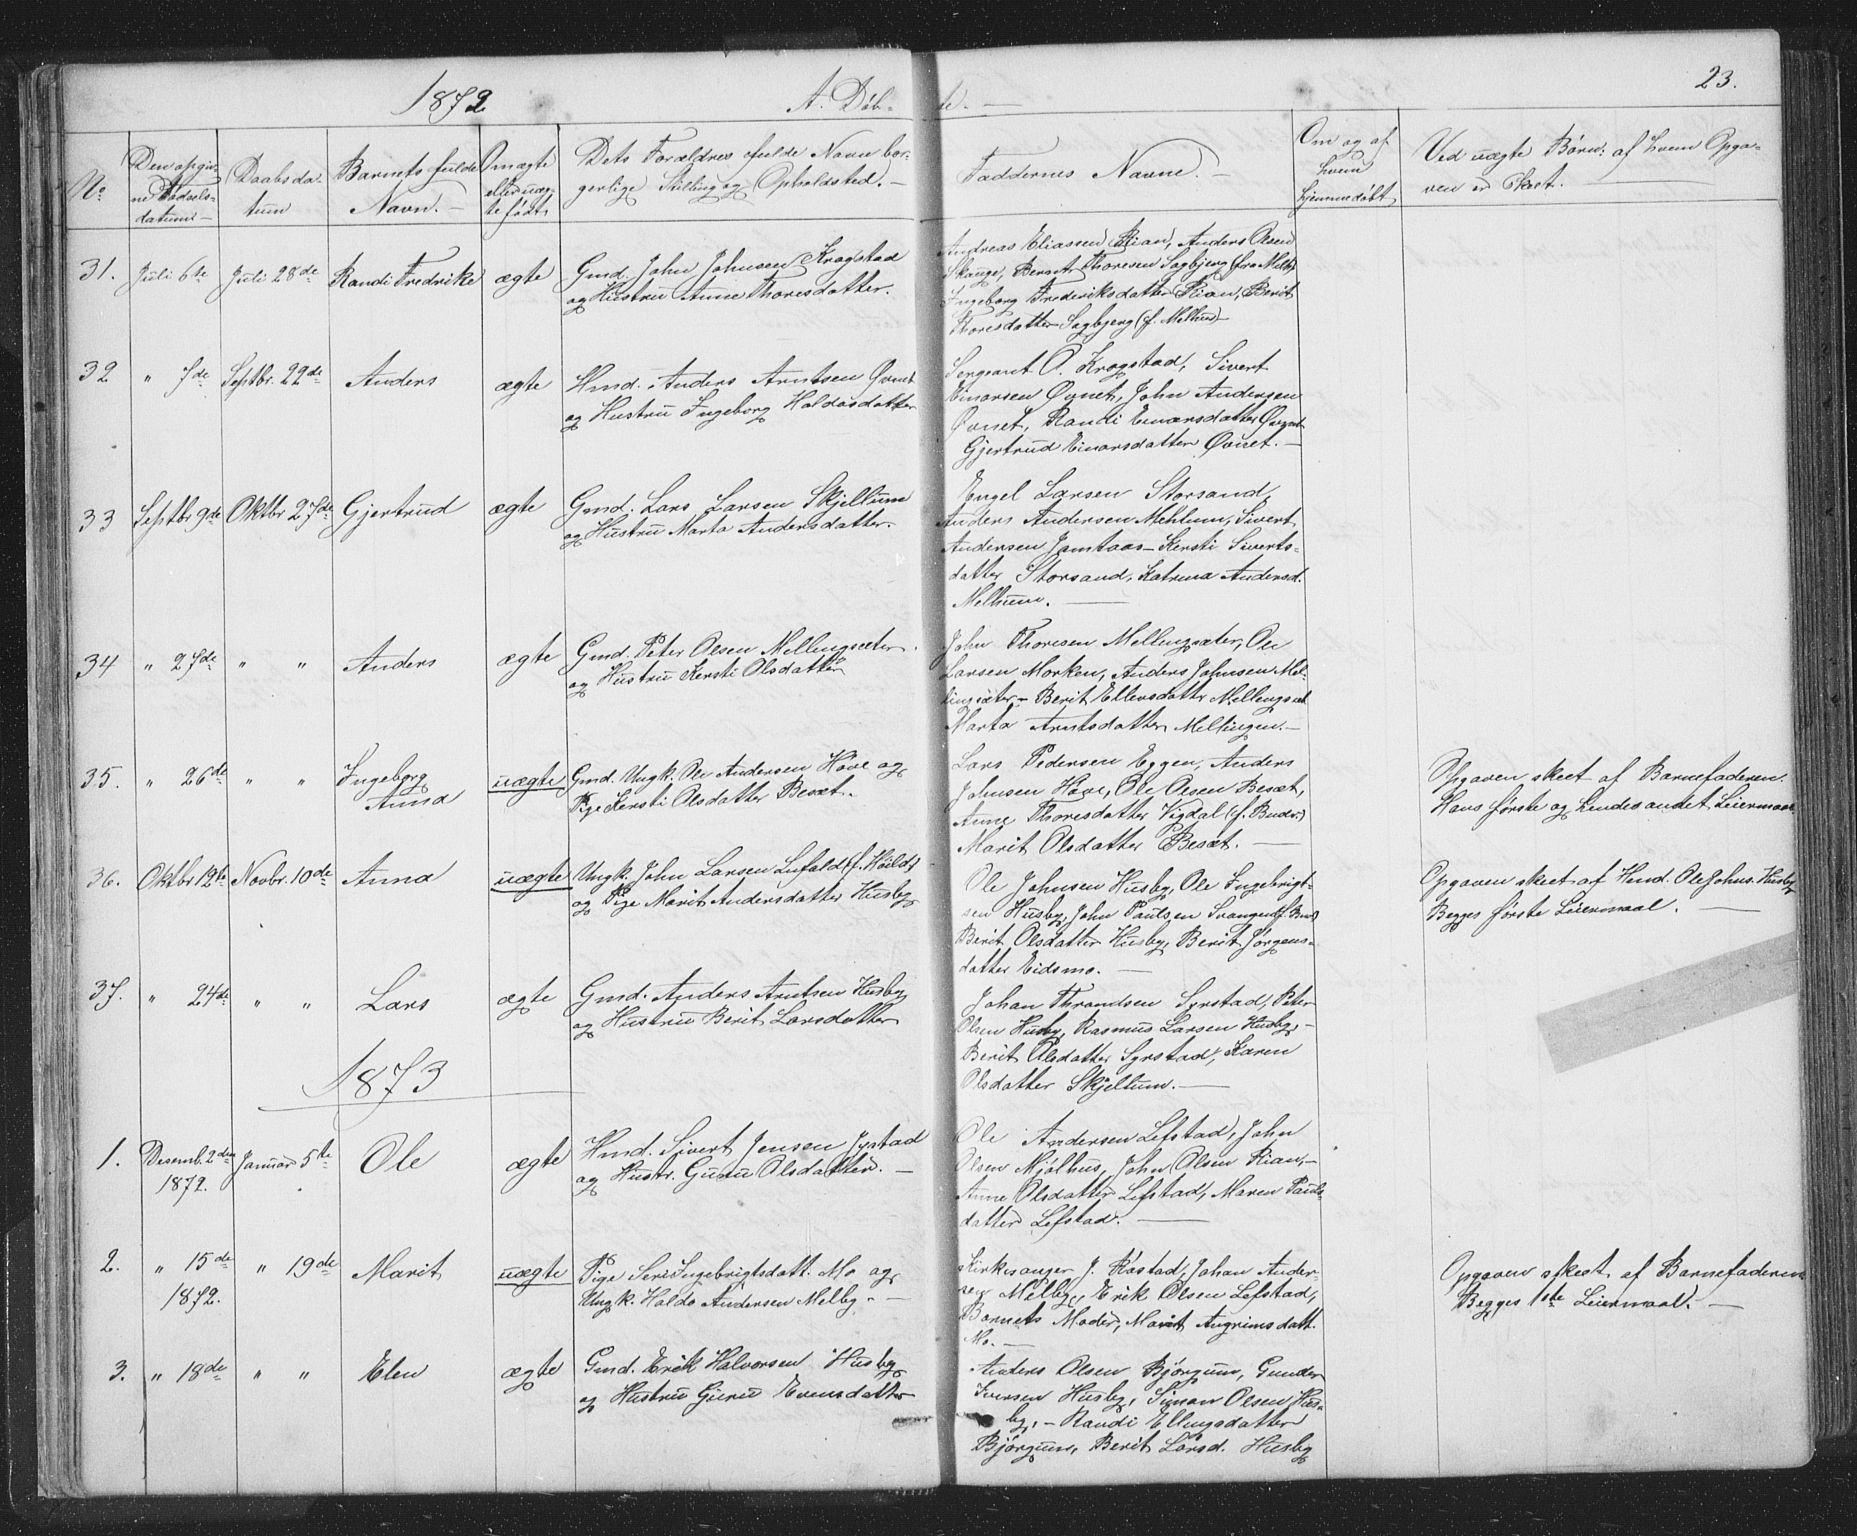 1872
A. Døb-
te. —
23.
No
Den opgiv-
ne Fødsels-
datum —
Daabsda-
tum
Barnets fulde
Navn. —
Om ægte
eller uæg-
te født
Dets Forældres fulde Navn bor-
gerlige Stilling og Opholdsted. —
Faddernes Navne. —
Om og af
hvem
hjemmedøbt
Ved uægte Børn: af hvem Opga-
ven er skeet. —
31. Juli 6te Juli 28de Randi Fredrikke ægte
Gmd. John Johnsen Krogstad
og Hustru Anne Thoresdatter.
Andreas Eliassen Rian, Anders Olsen
Skauge, Bernt Thoresen Sagbjerg (fra Melh.)
Ingeborg Frederiksdatter Rian, Berit
Thoresdatter Sagbjerg (f. Melhus)
32 " 7de Septbr. 22de Anders ægte
Hmd. Anders Arntsen Øvnet
og Hustru Ingeborg Haldosdatter
Sergeant O. Krogstad, Sivert
Einarsen Øvnet, John Andersen
Øvnet, Randi Einarsdatter Øvnet
Gjertrud Einarsdatter Øvnet. —
33 Septbr 9de Oktbr 27de Gjertrud ægte
Gmd. Lars Larsen Skjellum
og Hustru Marta Andersdatter.
Engel Larsen Storsand,
Anders Andersen Mehlum, Sivert
Andersen Jamtaas — Kersti Siverts-
datter Storsand, Katrina Andersd.
Melhum. —
34 " 27de " " Anders ægte
Gmd. Peter Olsen Mellingsæter
og Hustru Kersti Olsdatter
John Thoresen Mellingsæter, Ole
Larsen Morken, Anders Johnsen Mel-
lingsæter — Berit Ellevsdatter Mellingsæt
Marta Arntsdatter Mellingen. —
35. " 26de " " Ingeborg
Anna
uægte
Gmd. Ungk. Ole Andersen Hove og
Pige Kersti Olsdatter Besæt.
Lars Pedersen Eggen, Anders
Johnsen Hove, Ole Olsen Besæt,
Anne Thoresdatter Vigdal (f. Budv.)
Marit Olsdatter Besæt. —
Opgaven skeet af Barnefaderen.
Hans første og hendes andet Leiermaal
36. Oktbr 12te Novbr. 10de Anna uægte
Ungk. John Larsen Lufald (f. Høilds)
og Pige Marit Andersdatter Husby
Ole Johnsen Husby, Ole Ingebrigt-
sen Husby, John Paulsen Svangen (f. Bud)
Berit Olsdatter Husby, Berit Jørgens-
datter Eidsmo. —
Opgaven skeet af Hmd. Ole Johns. Husby
Begges første Leiermaal. —
37. " 24de " " Lars ægte
Gmd. Anders Arntsen Husby
og Hustru Berit Larsdatter
Johan Throndsen Syrstad, Peter
Olsen Husby, Rasmus Larsen Husby, —
Berit Olsdatter Syrstad, Karen
Olsdatter Skjellum. —
1873
1. Desemb. 2den
1872.
Januar 5te Ole ægte
Hmd. Sivert Jensen Jystad
og Hustr. Guru Olsdatter. —
Ole Andersen Lefstad, John
Olsen Mjølhus, John Olsen Rian, —
Anne Olsdatter Lefstad, Maren Pauls-
datter Lefstad. —
2. " 15de
1872.
" 19de Marit uægte
Pige Seri Ingebrigtsdatt. Mo og
Ungk. Haldo Andersen Melby. —
Kirkesanger J. Røstad, Johan Ander-
sen Melby, Erik Olsen Lefstad,
Barnets Moder, Marit Angrimsdatt.
Mo. —
Opgaven skeet af Barnefaderen
Begges 1ste Leiermaal. —
3. " 18de " " Elen ægte
Gmd. Erik Halvorsen Husby
og Hustru Guru Evensdatter
Anders Olsen Bjørgum, Gunder
Iversen Husby, Simon Olsen Hus-
by, — Randi Ellingsdatter
Bjørgum, Berit Larsd. Husby